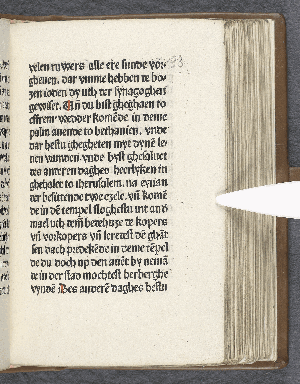 velen ruwers alle ere sunde vor
gheuen. dar vmme hebben te bo
zen ioden dy vth ter synagoghen
gewiset. Vn du bist ghegaen to
effrem wedder komēde in deme
palm auende to bethanien. vnde
dar hestu ghegheten myt dynē le
uen vrunden vnde byst ghesaluet
des anderen daghes heerlyken in
ghehalet to iherusalem. na
ter besittende twe ezele. vn̄ komē
de in dē tempel sloghestu vte and
mael vth tem bedehuze te kopers
vn̄ vorkopers vn̄ leretest dē ghāt
sen dach predekēde in deme tēpel
de du doch vp den auēt by nemā
de in der stad mochtest herberghe
vynde Des anderē daghes hestu